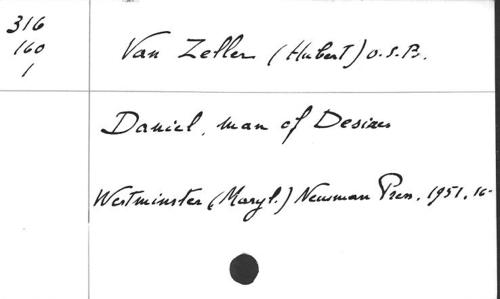 316
160
1
Van Zeller (Hubert) O.S.B.
Daniel, man of Desires
Westminster (Maryl.) Newman Press. 1951. 16-